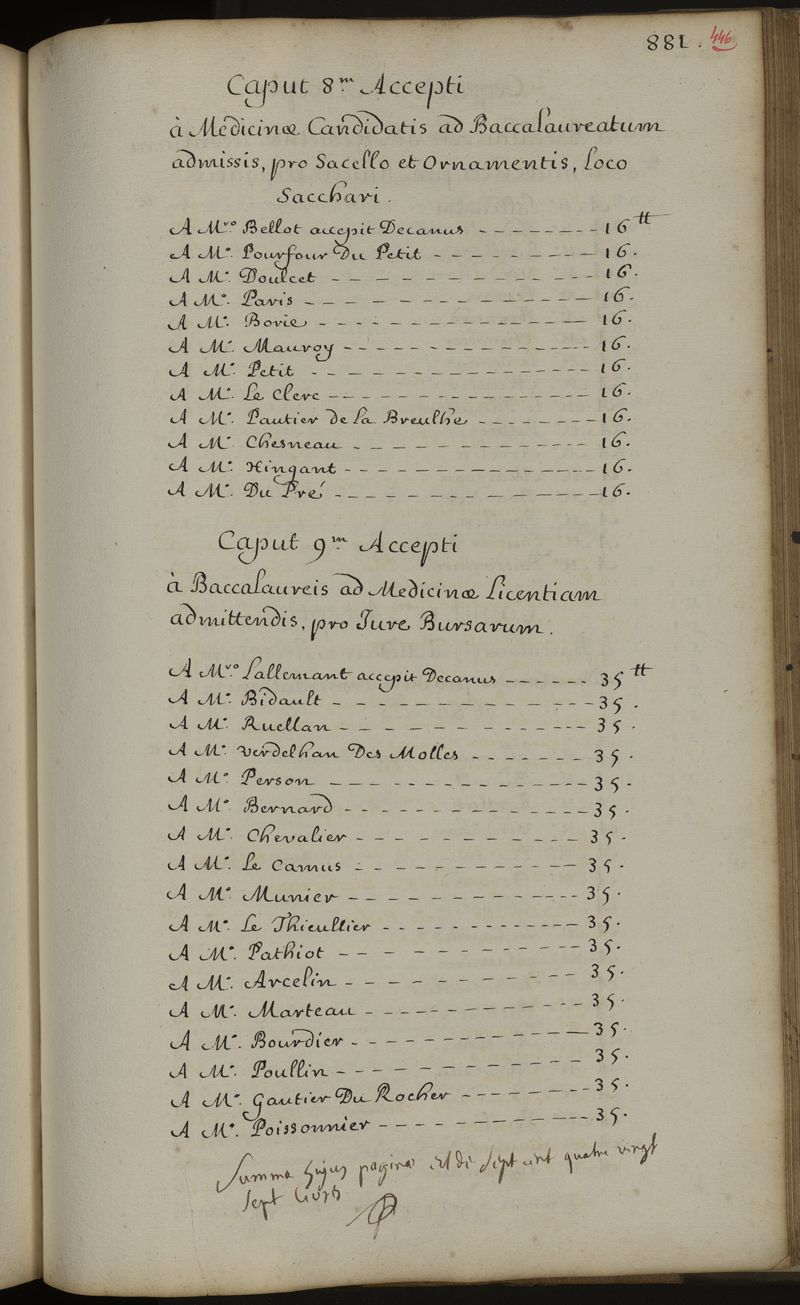 881. 446
Caput 8.m Accepti
à Medicinæ Candidatis ad Baccalaureatum
admissis, pro Sacello et Ornamentis, loco
Sacchari.
A M.ro Bellot accepit Decanus -------- 16 tt
A M.o Pourfour Du Petit --------- 16.
A M.r Doulcet ------------ 16.
A M.o Paris ------------- 16.
A M.r Borie ------------ 16.
A M.r Mauvoy ------------ 16.
A M.r Petit ------------- 16.
A M.r Le Clerc ------------- 16.
A M.r Pautier de la Breulhe -------- 16.
A M.r Chesneau ------------ 16.
A M.r Hingant ------------ 16.
A M.r Du Pré ------------ 16.
Caput 9.m Accepti
à Baccalaureis ad Medicinæ Licentiam
admittendis, pro Jure Bursarum.
A M.ro Lallemant accepit Decanus ------ 35 tt
A M.r Bidault ------------ 35.
A M.r Ruellan ----------- 35.
A M.r Verdelhan Des Molles ------- 35.
A M.o Person ------------ 35.
A M.o Bernard ------------ 35.
A M.r Chevalier ---------- 35.
A M.r Le Camus ----------- 35.
A M.r Munier ----------- 35.
A M.r Le Thieullier ---------- 35.
A M.r Pathiot ---------- 35.
A M.r Arcelin ---------- 35.
A M.r Marteau ---------- 35.
A M.r Bourdier ---------- 35.
A M.r Poullin ---------- 35.
A M.r Gautier Du Rocher -------- 35.
A M.r Poissonnier ---------- 35.
Summa hujus paginæ est de sept cent quatre vingt
sept livres